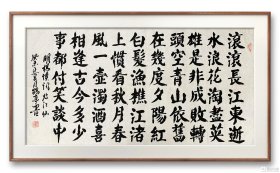 滚滚長江東逝
水浪花淘盡英
雄是非成敗轉
頭空青山依舊
在幾度夕陽紅
白髮漁樵江渚
上慣看秋月春
風一壺濁酒喜
相逢古今多少
事都付笑談中
明楊慎詞臨江仙